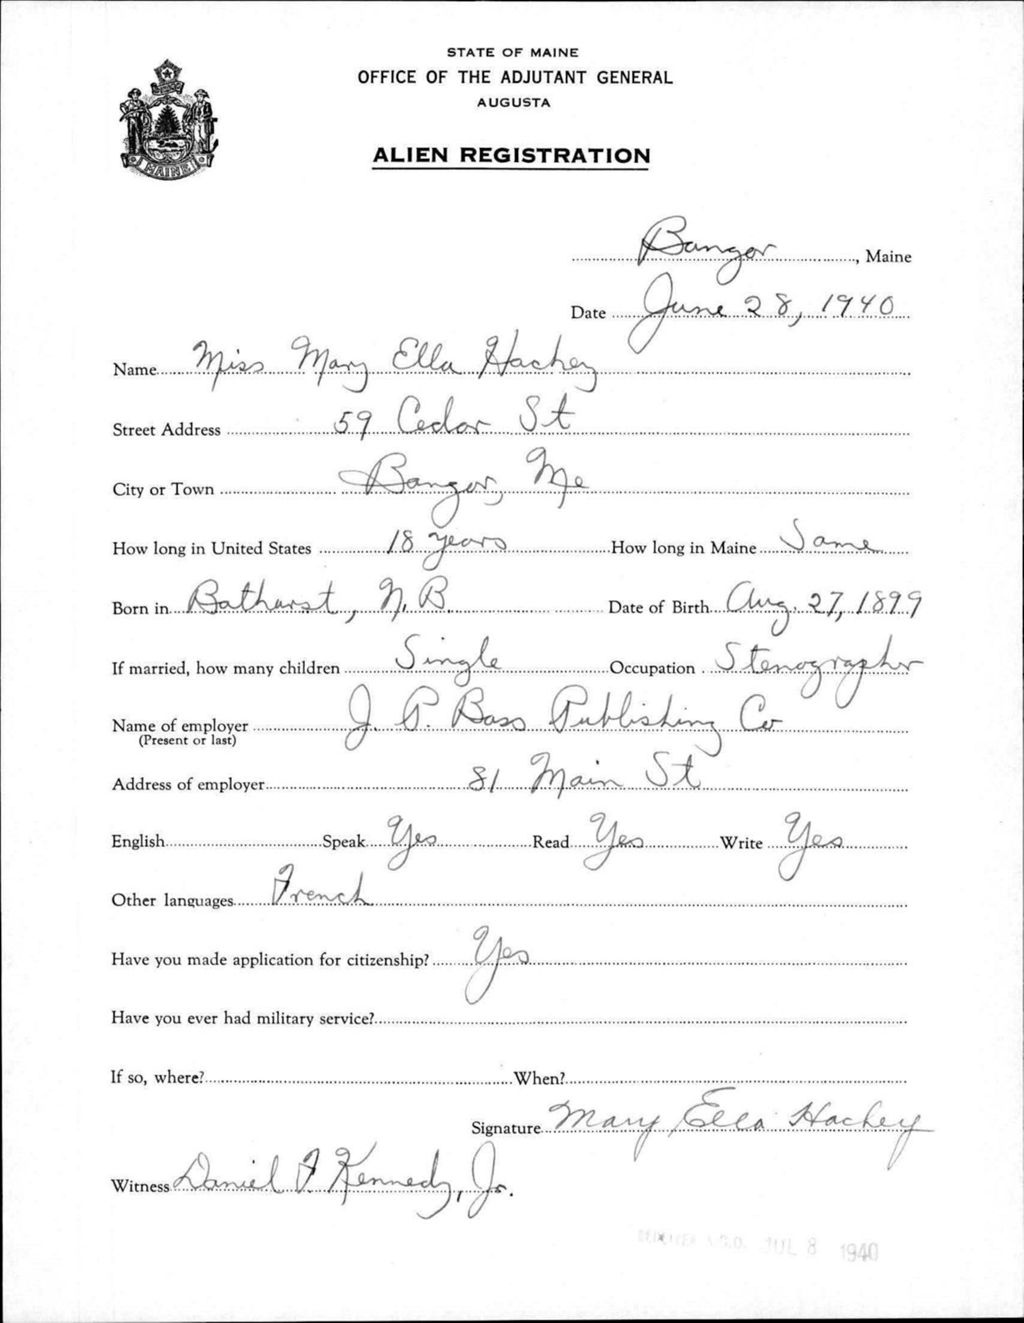 STATE OF MAINE
OFFICE OF THE ADJUTANT GENERAL
AUGUSTA
ALIEN REGISTRATION
MAINE
Bangor, Maine
Date June 28, 1940
Name Miss Mary Ella Hachey
Street Address 59 Cedar St
City or Town Bangor, Me
How long in United States 18 years How long in Maine Same
Born in Bathurst, N.B. Date of Birth Aug. 27, 1899
If married, how many children Single Occupation Stenographer
Name of employer J. P. Bass Publishing Co
(Present or last)
Address of employer 81 Main St
English Speak Yes Read Yes Write Yes
Other languages French
Have you made application for citizenship? Yes
Have you ever had military service?
If so, where? When?
Signature Mary Ella Hachey
Witness Daniel F. Kennedy, Jr.
A.G.O. JUL 8 1940